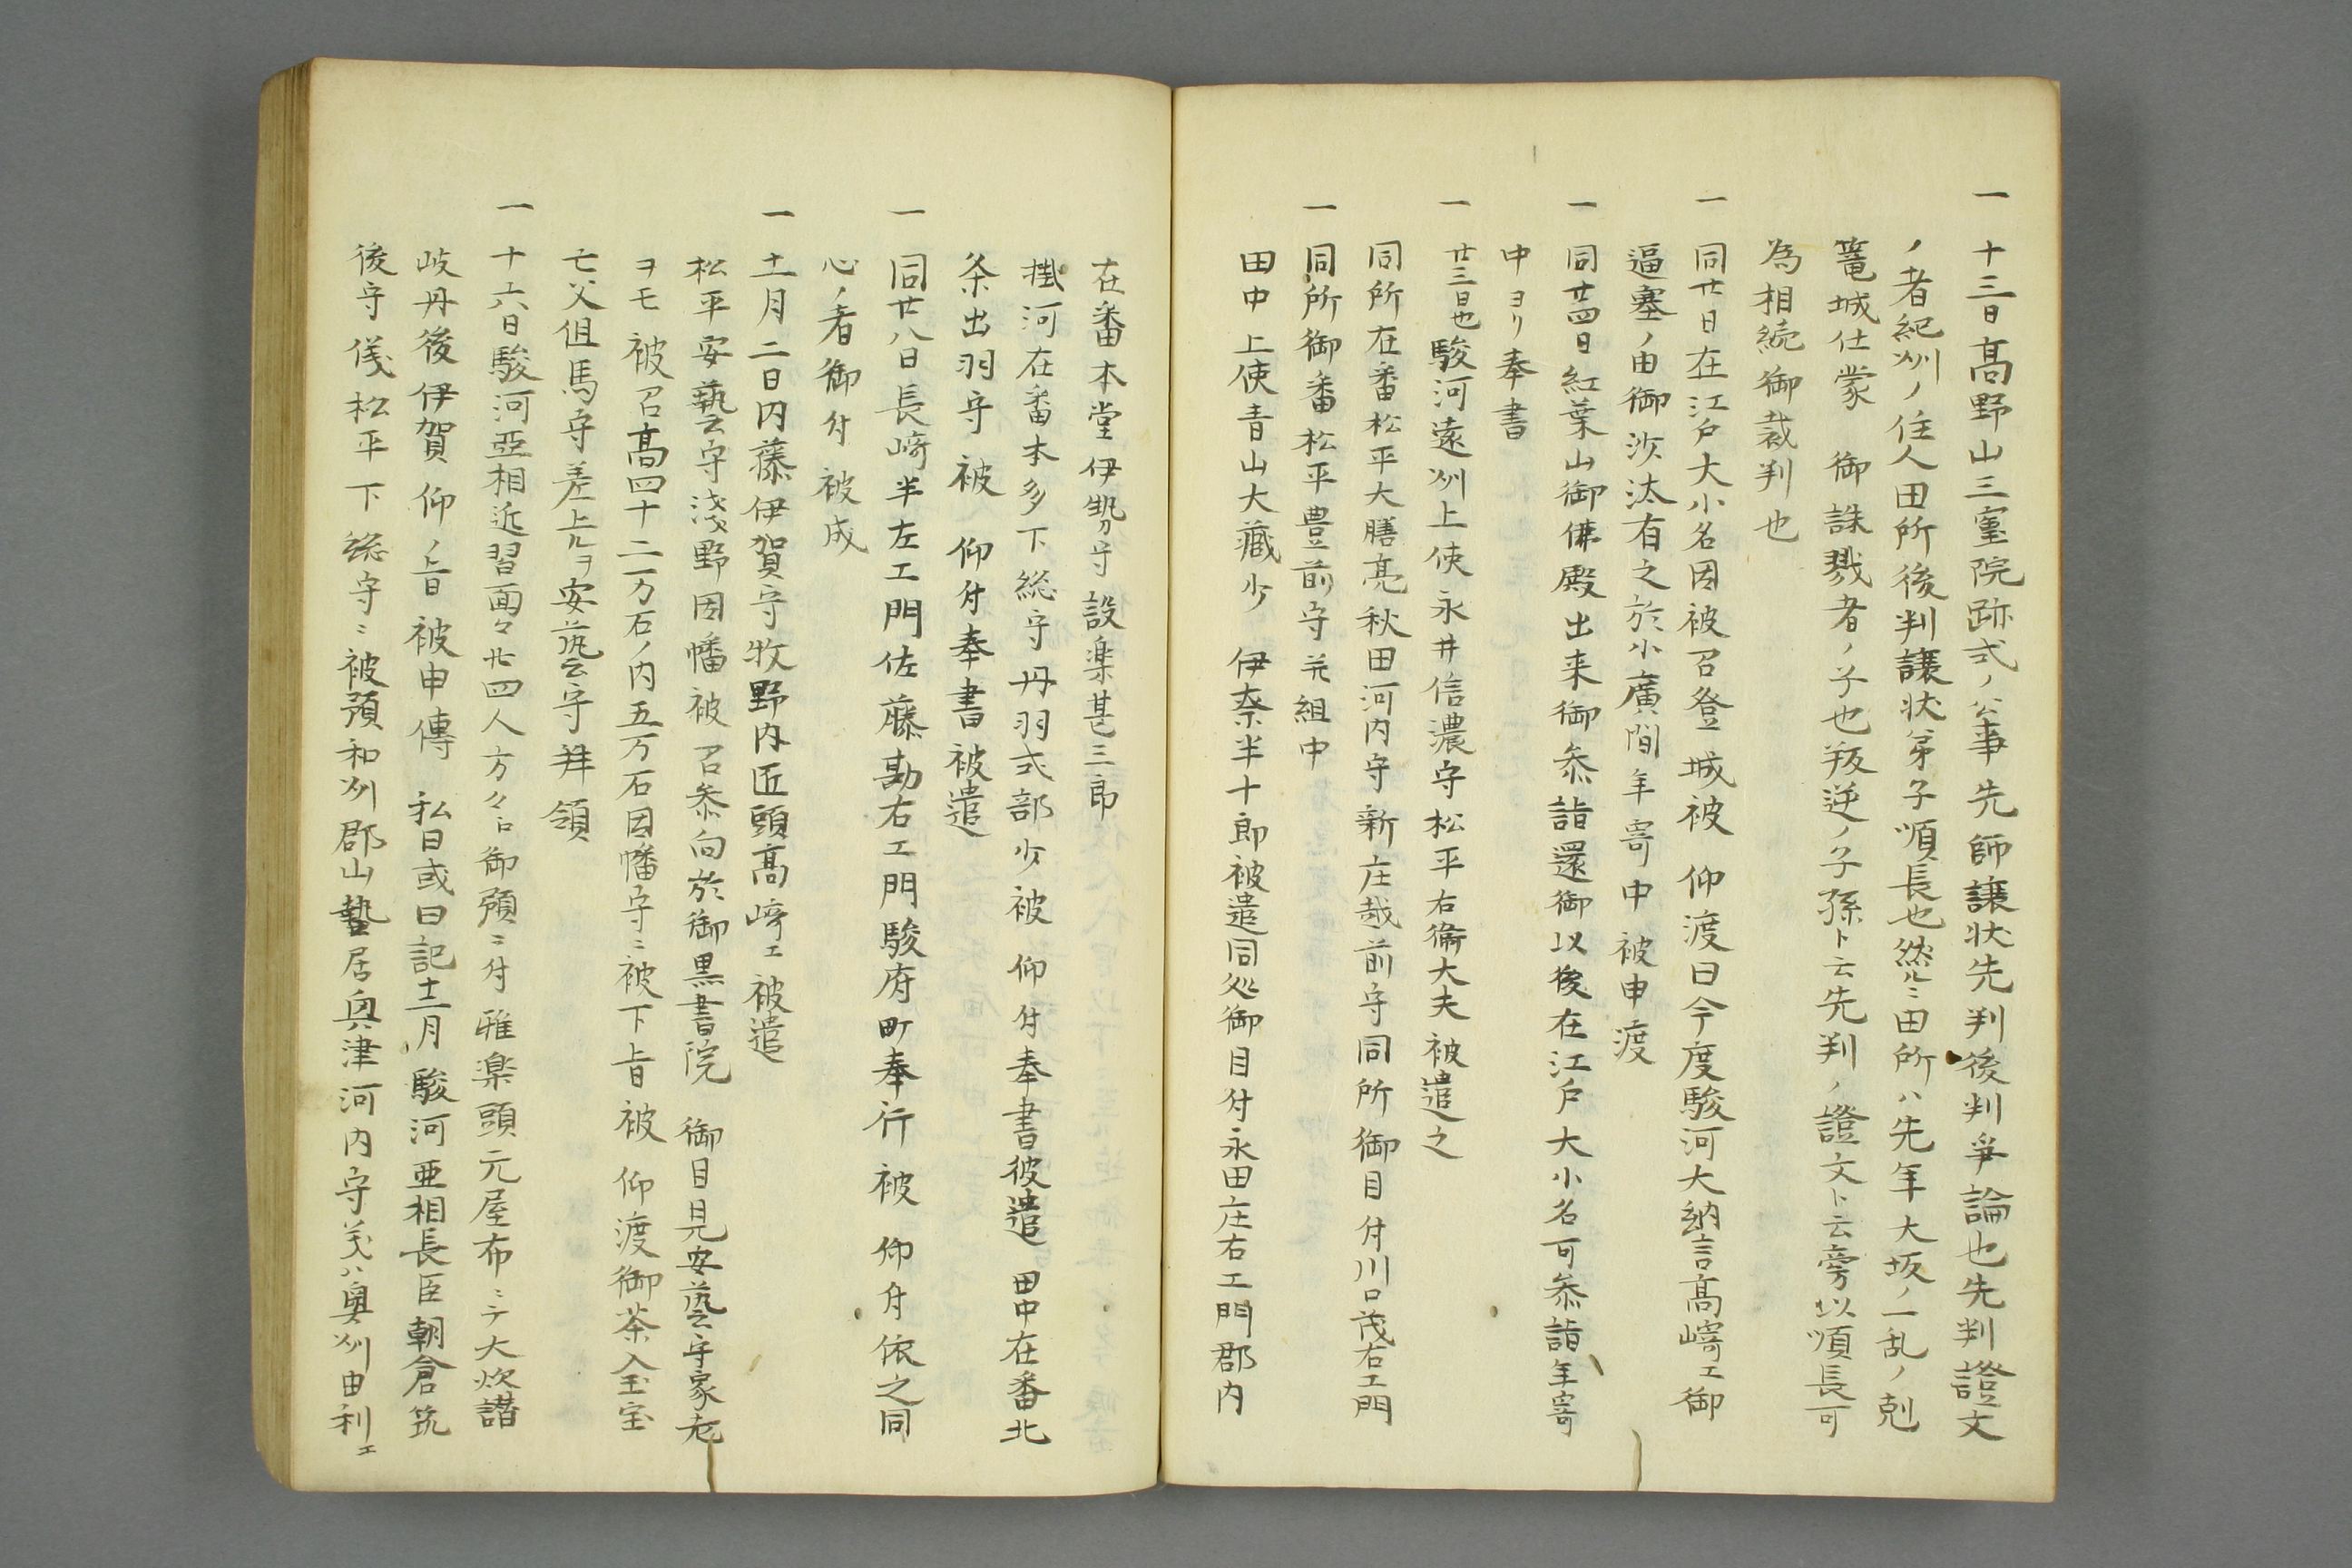 一 十三日高野山三宝院跡式ノ公事先師譲状先判後判爭論也先判證文
ノ者紀州ノ住人田所後判譲状弟子順長也然ルニ田所ハ先年大坂ノ一乱ノ剋
篭城仕蒙 御誅戮者ノ子也叛逆ノ子孫ト云先判ノ證文ト云旁以順長可
為相続御裁判也
一 同廿日在江戸大小名因被召登 城被 仰渡曰今度駿河大納言高﨑エ御
逼塞ノ由御沙汰有之於小廣間年寄中被申渡
一 同廿四日紅葉山御佛殿出来御参詣還御以後在江戸大小名可参詣年寄
中ヨリ奉書
一 廿三日也駿河遠州上使永井信濃守松平右衛大夫被遣之
同所在番松平大膳亮秋田河内守新庄越前守同所御目付川口茂右エ門
一 同所御番松平豊前守并組中
田中 上使青山大藏少 伊奈半十郎被遣同処御目付永田庄右エ門郡内
在番本堂伊勢守設楽甚三郎
掛河在番本多下総守丹羽式部少被 仰付奉書被遣 田中在番北
条出羽守 被 仰付奉書被遣
一 同廿八日長﨑半左エ門佐藤勘右エ門駿府町奉行被 仰付依之同
心ノ者御付被成
一 十一月二日内藤伊賀守牧野内匠頭高﨑エ被遣
松平安藝守浅野因幡被召参向於御黒書院 御目見安藝守家老
ヲモ 被召高四十二万石ノ内五万石因幡守ニ被下旨 被 仰渡御茶入金宝
亡父但馬守差上ルヲ安藝守拝領
一 十六日駿河亞相近習面々廿四人方々江御預ニ付雅楽頭元屋布ニテ大炊讃
岐丹後伊賀 仰ノ旨被申傳 私曰或日記十二月駿河亜相長臣朝倉筑
後守儀松平下総守ニ被預和州郡山蟄居奥津河内守義ハ奥州由利エ